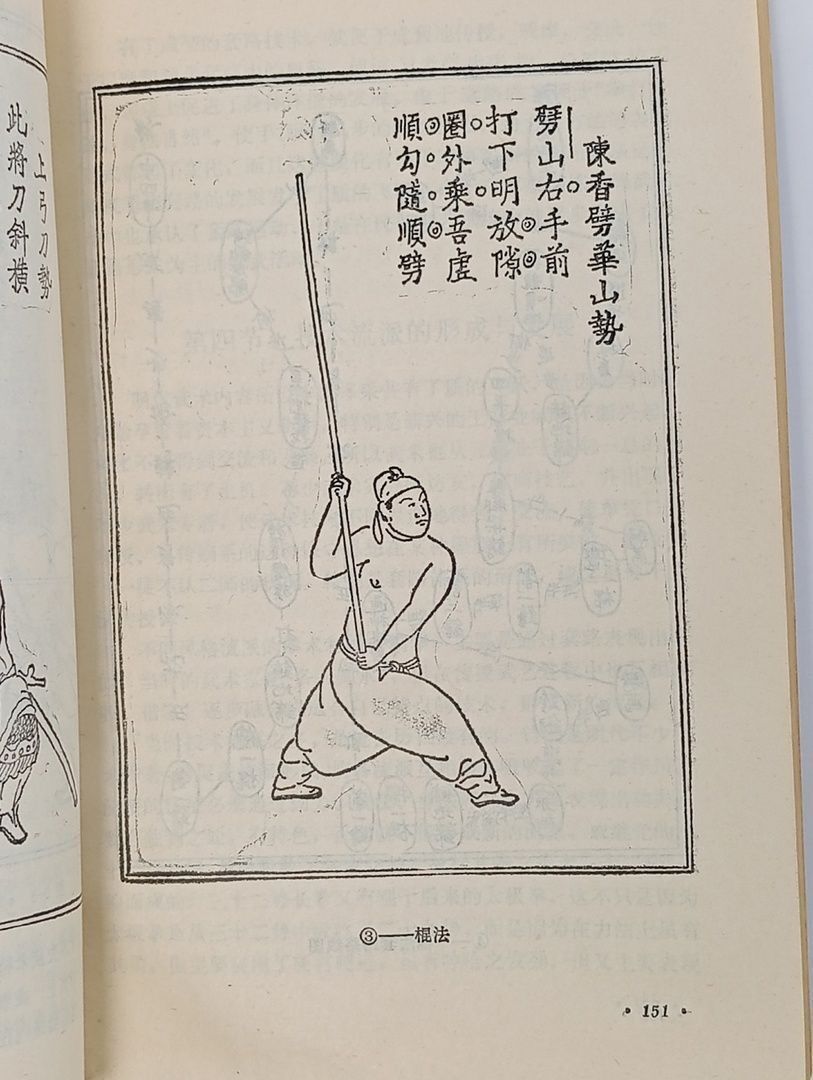 上弓刀勢
此將刀斜横
陳香劈華山勢
劈山右手前
打下明放隙
圈外乘吾虛
順勾隨順劈
③——棍法
• 151 •